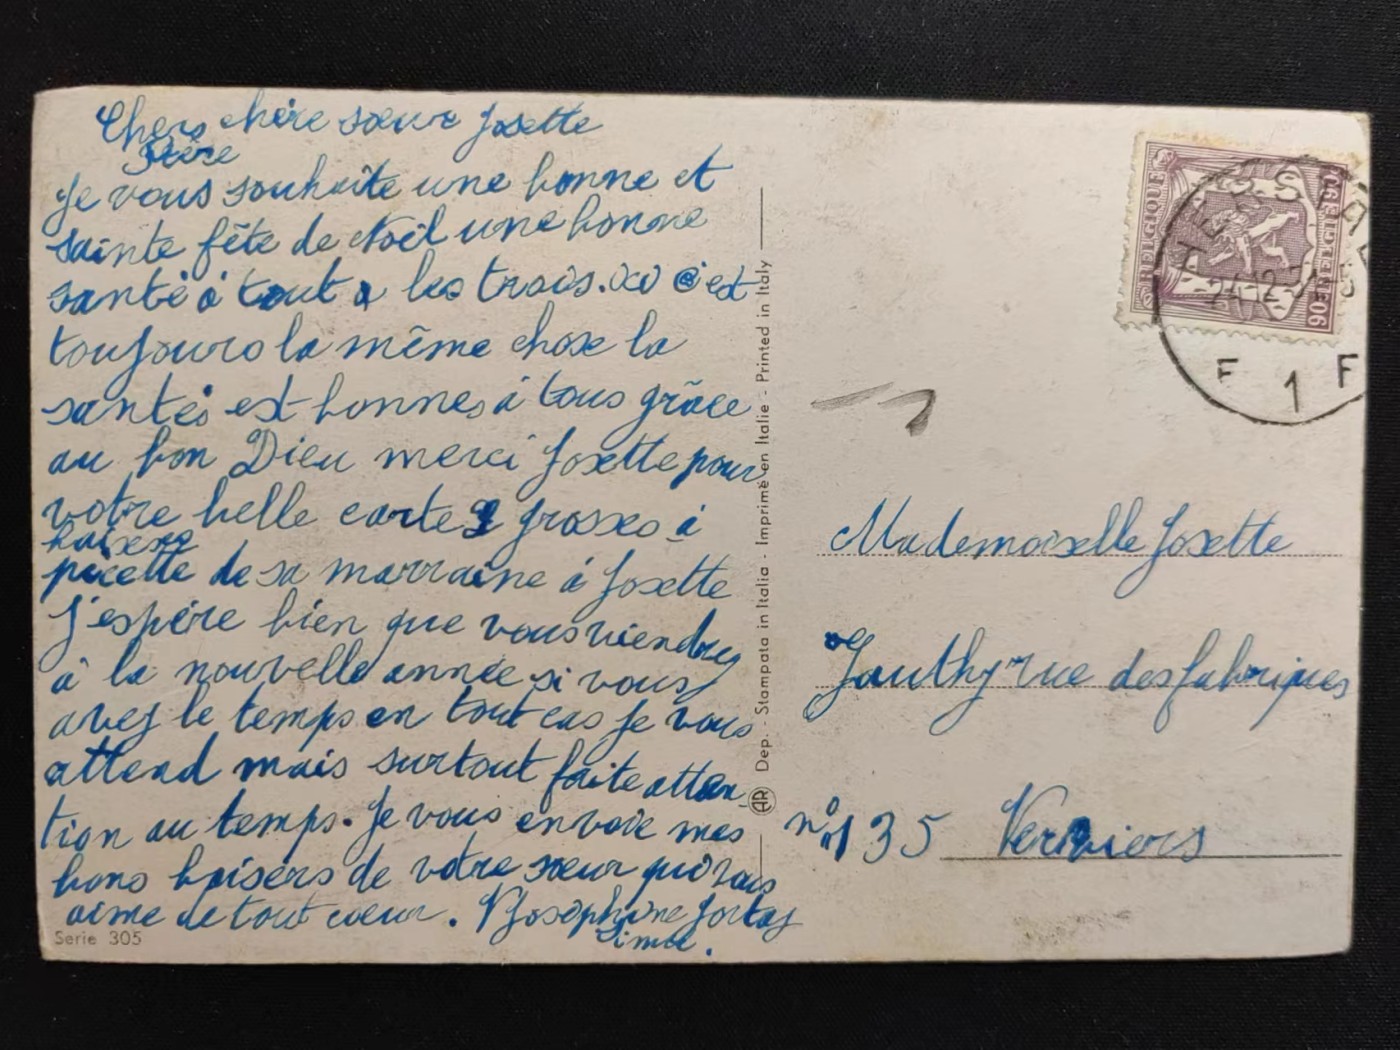 Chers chère sœur Josette
Frère
Je vous souhaite une bonne et
sainte fête de Noël une bonne
santé à tout a les trois. ici c'est
toujours la même chose la
santés est bonnes à tous grâce
au bon Dieu merci Josette pour
votre belle carte grosses à
baisers
picette de sa marraine à Josette
J'espère bien que vous viendrez
à la nouvelle année si vous
avez le temps en tout cas je vous
attend mais surtout faite atten
tion au temps. Je vous envoie mes
bons baisers de votre sœur qui vous
aime de tout cœur. Joséphine
Serie 305
Dep. - Stampata in Italia - Imprimé en Italie - Printed in Italy
AR
BELGIQUE
BELGIE
90
90
F 1 F
Mademoiselle Josette
Gauthy rue des fabriques
n° 135 Verviers